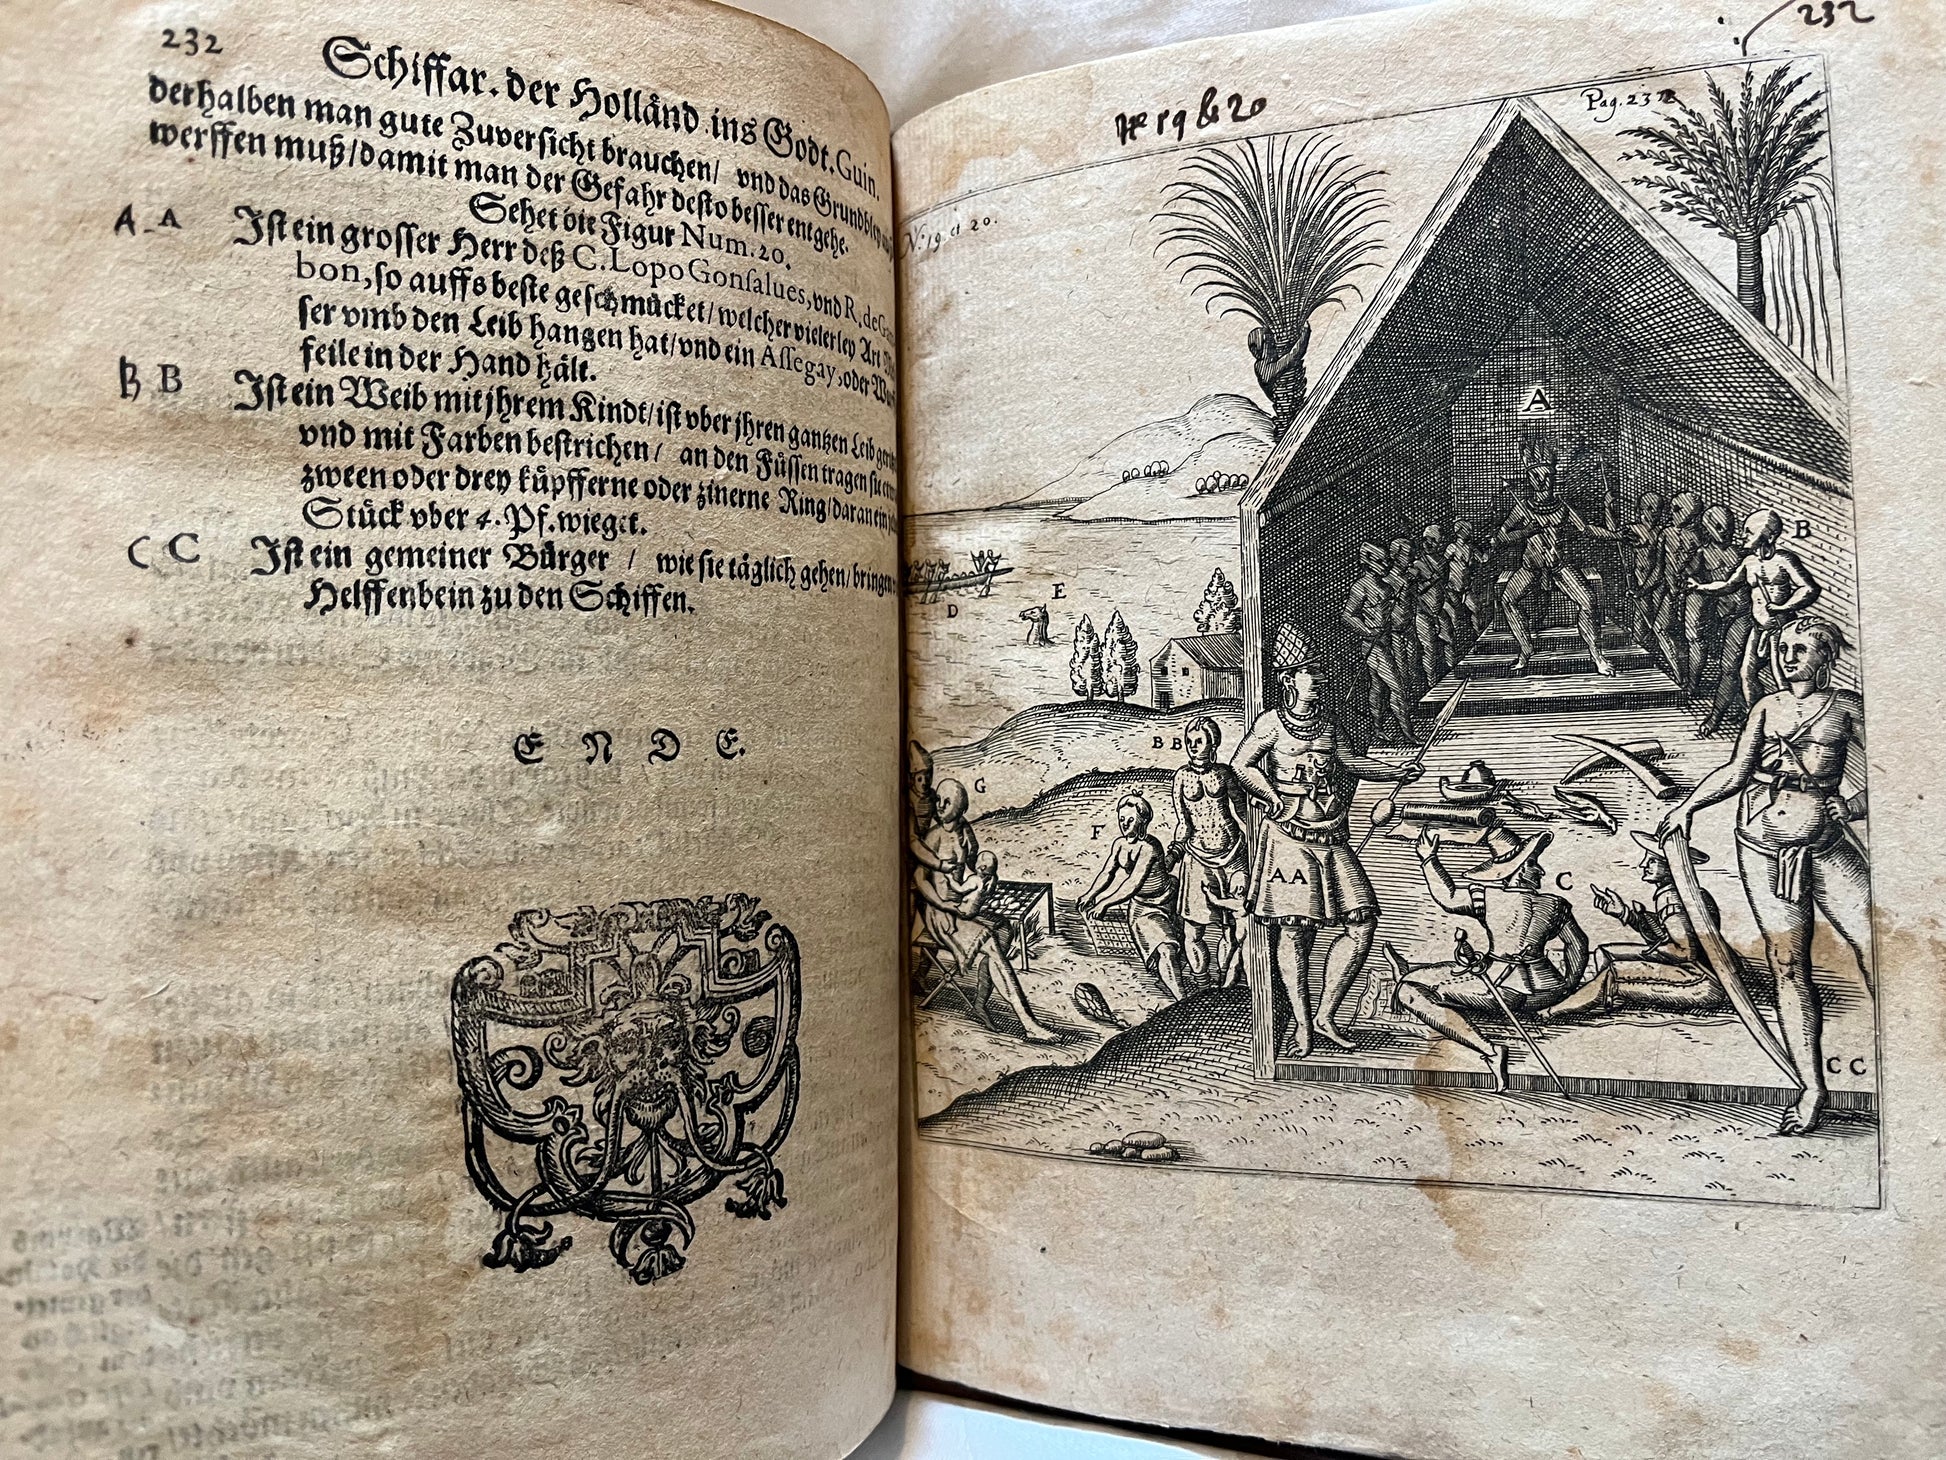 232
Schiffar. der Holländ. ins Godt. Guin.
derhalben man gute Zuversicht brauchen/ vnd das Grundbley
werffen muß/damit man der Gefahr desto besser entgehe.
Sehet die Figur Num. 20.
A A Ist ein grosser Herr deß C. Lopo Gonsalues, vnd R. de
bon, so auffs beste geschmücket/ welcher vielerley Art
ser vmb den Leib hangen hat/vnd ein Assegay, oder
feile in der Hand hält.
B B Ist ein Weib mit jhrem Kindt/ ist vber jhren gantzen Leib
vnd mit Farben bestrichen/ an den Füssen tragen sie
zween oder drey küpfferne oder zinerne Ring/daran ein
Stück vber 4. Pf. wieget.
C C Ist ein gemeiner Bürger / wie sie täglich gehen/bringen
Helffenbein zu den Schiffen.
E N D E.
232
No 19 & 20
Pag. 232
N: 19. et 20.
A
B
D
E
B B
G
F
A A
C
C C